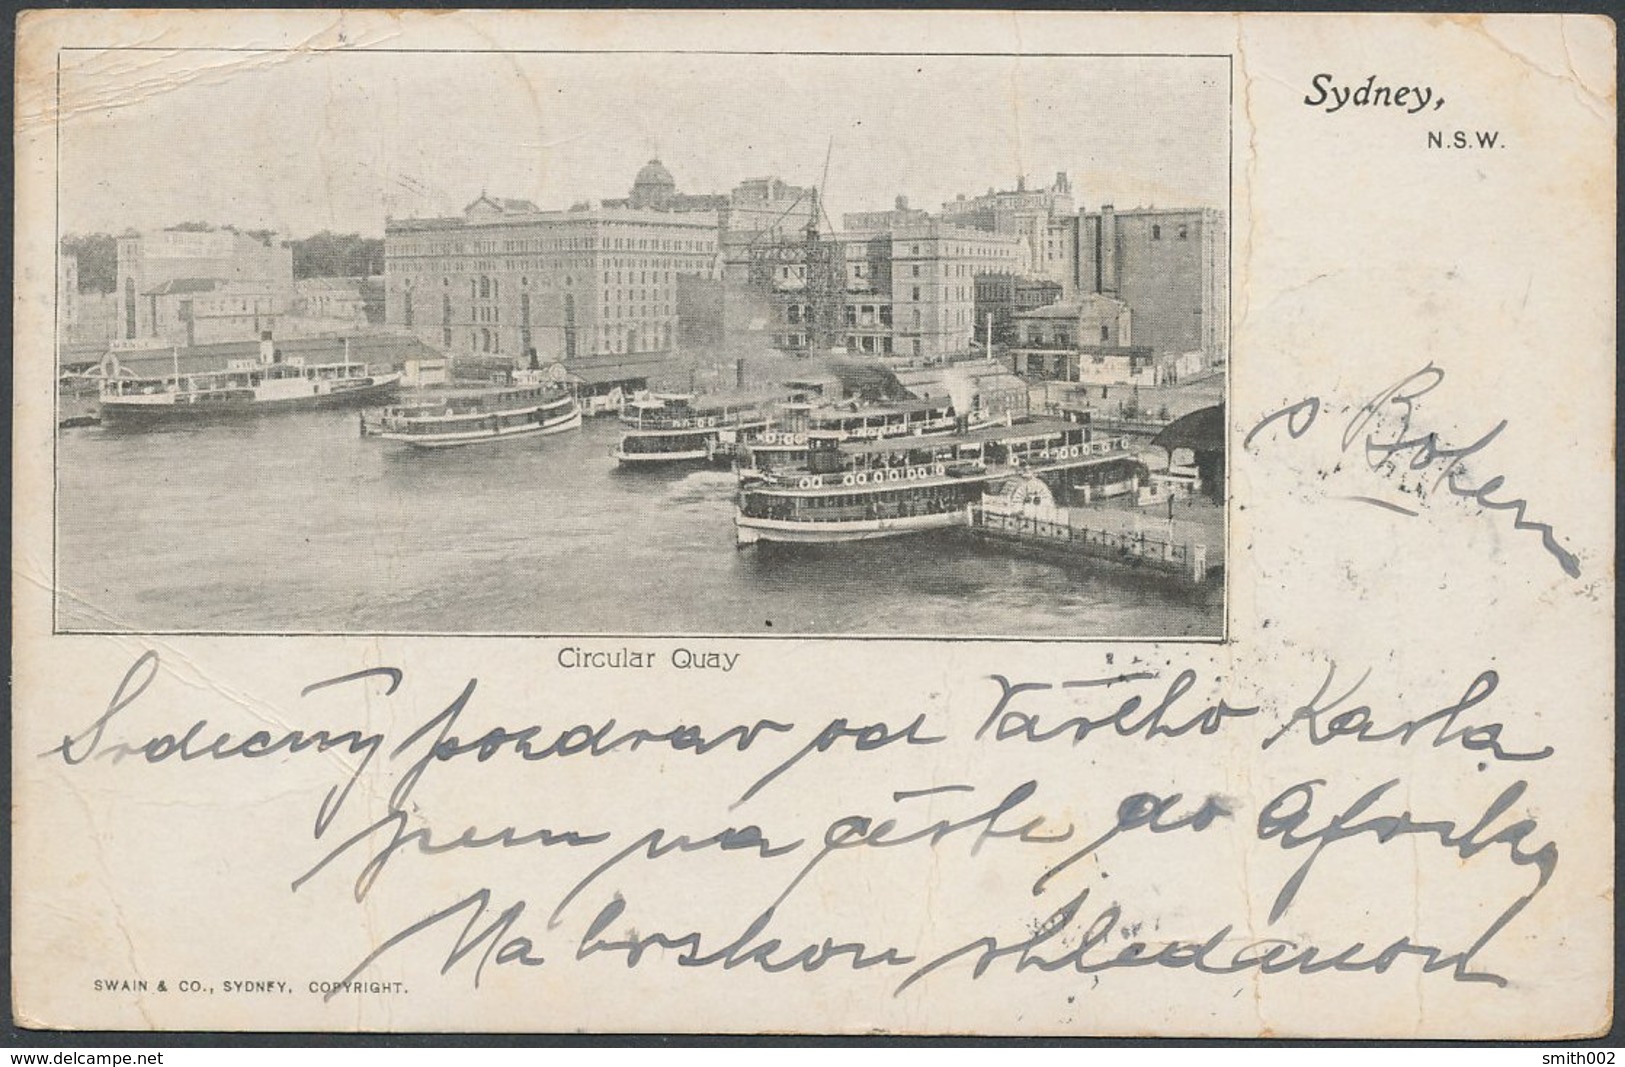 Sydney,
N.S.W.
Circular Quay
s Bohem
Srdečný pozdrav od Vašeho Karla
jsem na cestě do Afriky
Na brskou shledanou
SWAIN & CO., SYDNEY, COPYRIGHT.
www.delcampe.net
smith002